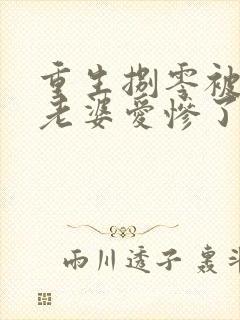 重生捌零被
老婆爱惨了
雨川透子 裏